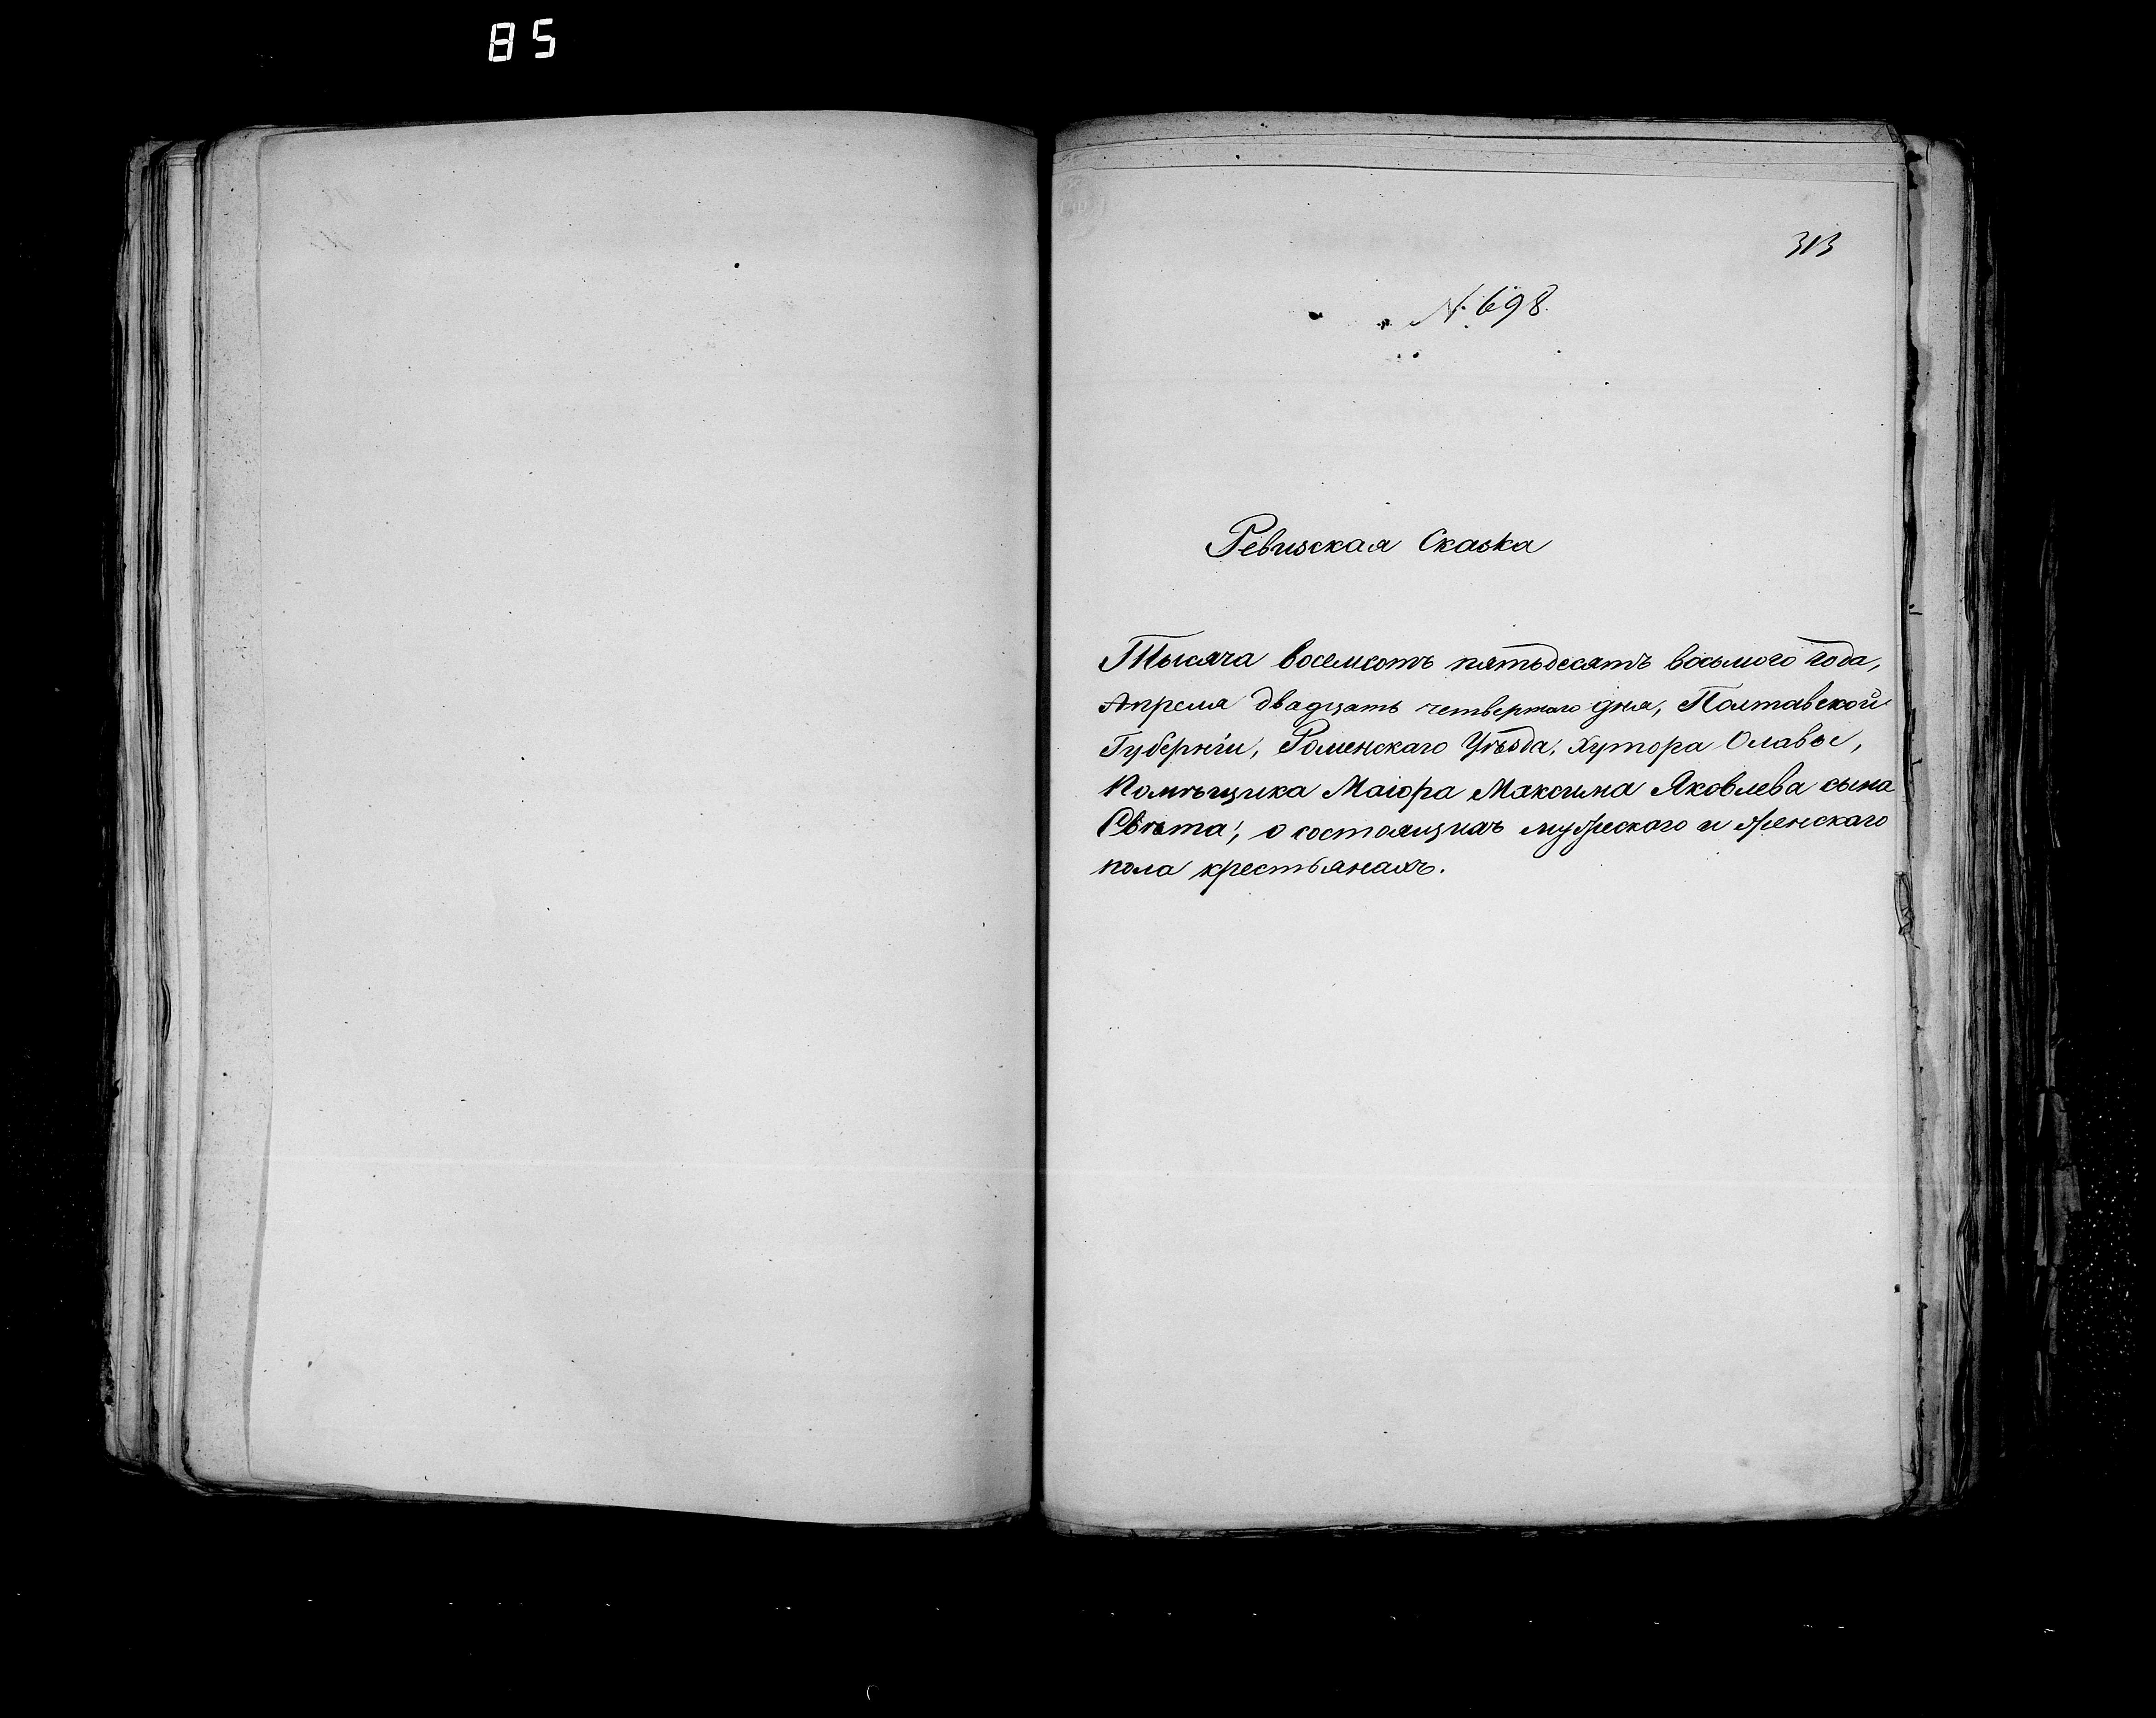 85
313
№ 698.
Ревизская Сказка
Тысяча восемсотъ пятьдесятъ восьмого года,
Апреля двадцать четвертого дня, Полтавской
Губернiи, Роменскаго Уѣзда, Хутора Олавы,
Помѣщика Маiора Максима Яковлева сына
Свѣта, о состоящихъ мужескаго и женскаго
пола крестьянахъ.